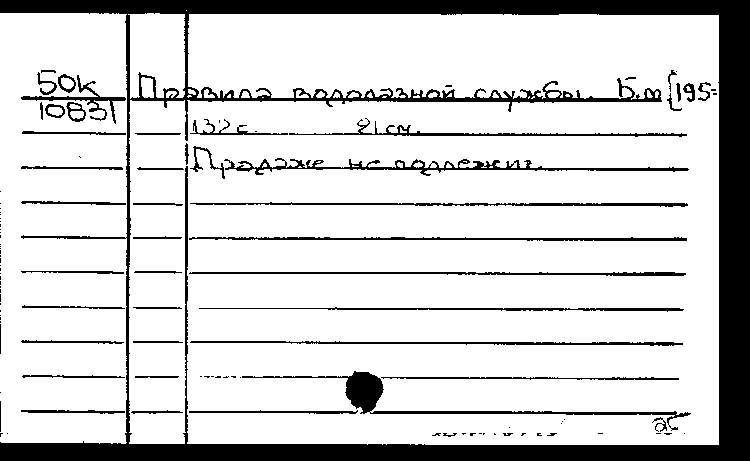 50К Правила водолазной службы. Б.м [195-
10831
132 с. 21 см.
Продаже не подлежит.